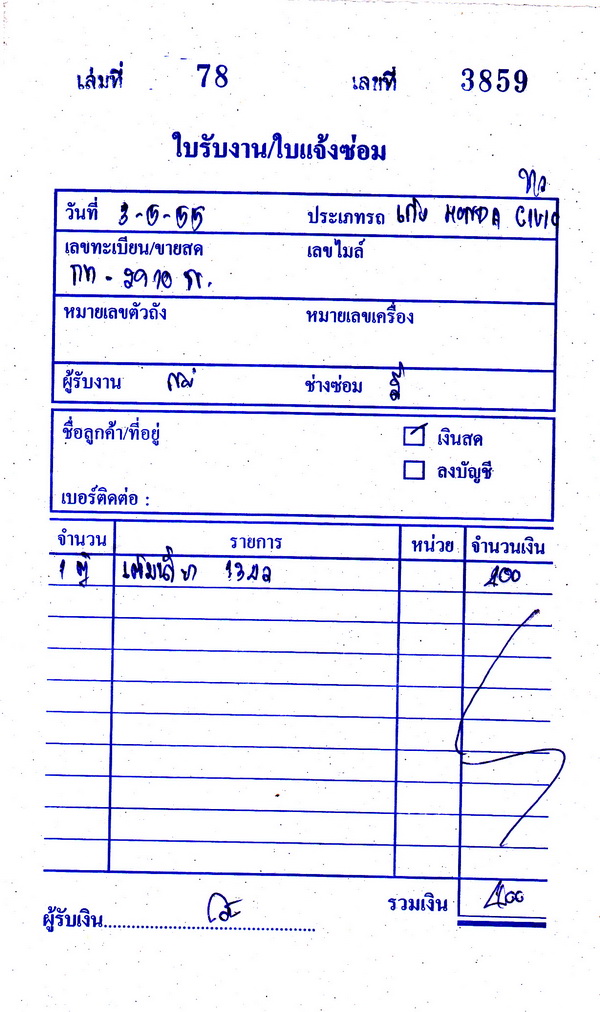 เล่มที่ 78 เลขที่ 3859
ใบรับงาน/ใบแจ้งซ่อม
วันที่ 3-5-55 ประเภทรถ เก๋ง HONDA CIVIC
เลขทะเบียน/ขายสด เลขไมล์
หมายเลขตัวถัง หมายเลขเครื่อง
ผู้รับงาน ช่างซ่อม
ชื่อลูกค้า/ที่อยู่ เงินสด
ลงบัญชี
เบอร์ติดต่อ :
จำนวน รายการ หน่วย จำนวนเงิน
1 400
รวมเงิน 400
ผู้รับเงิน